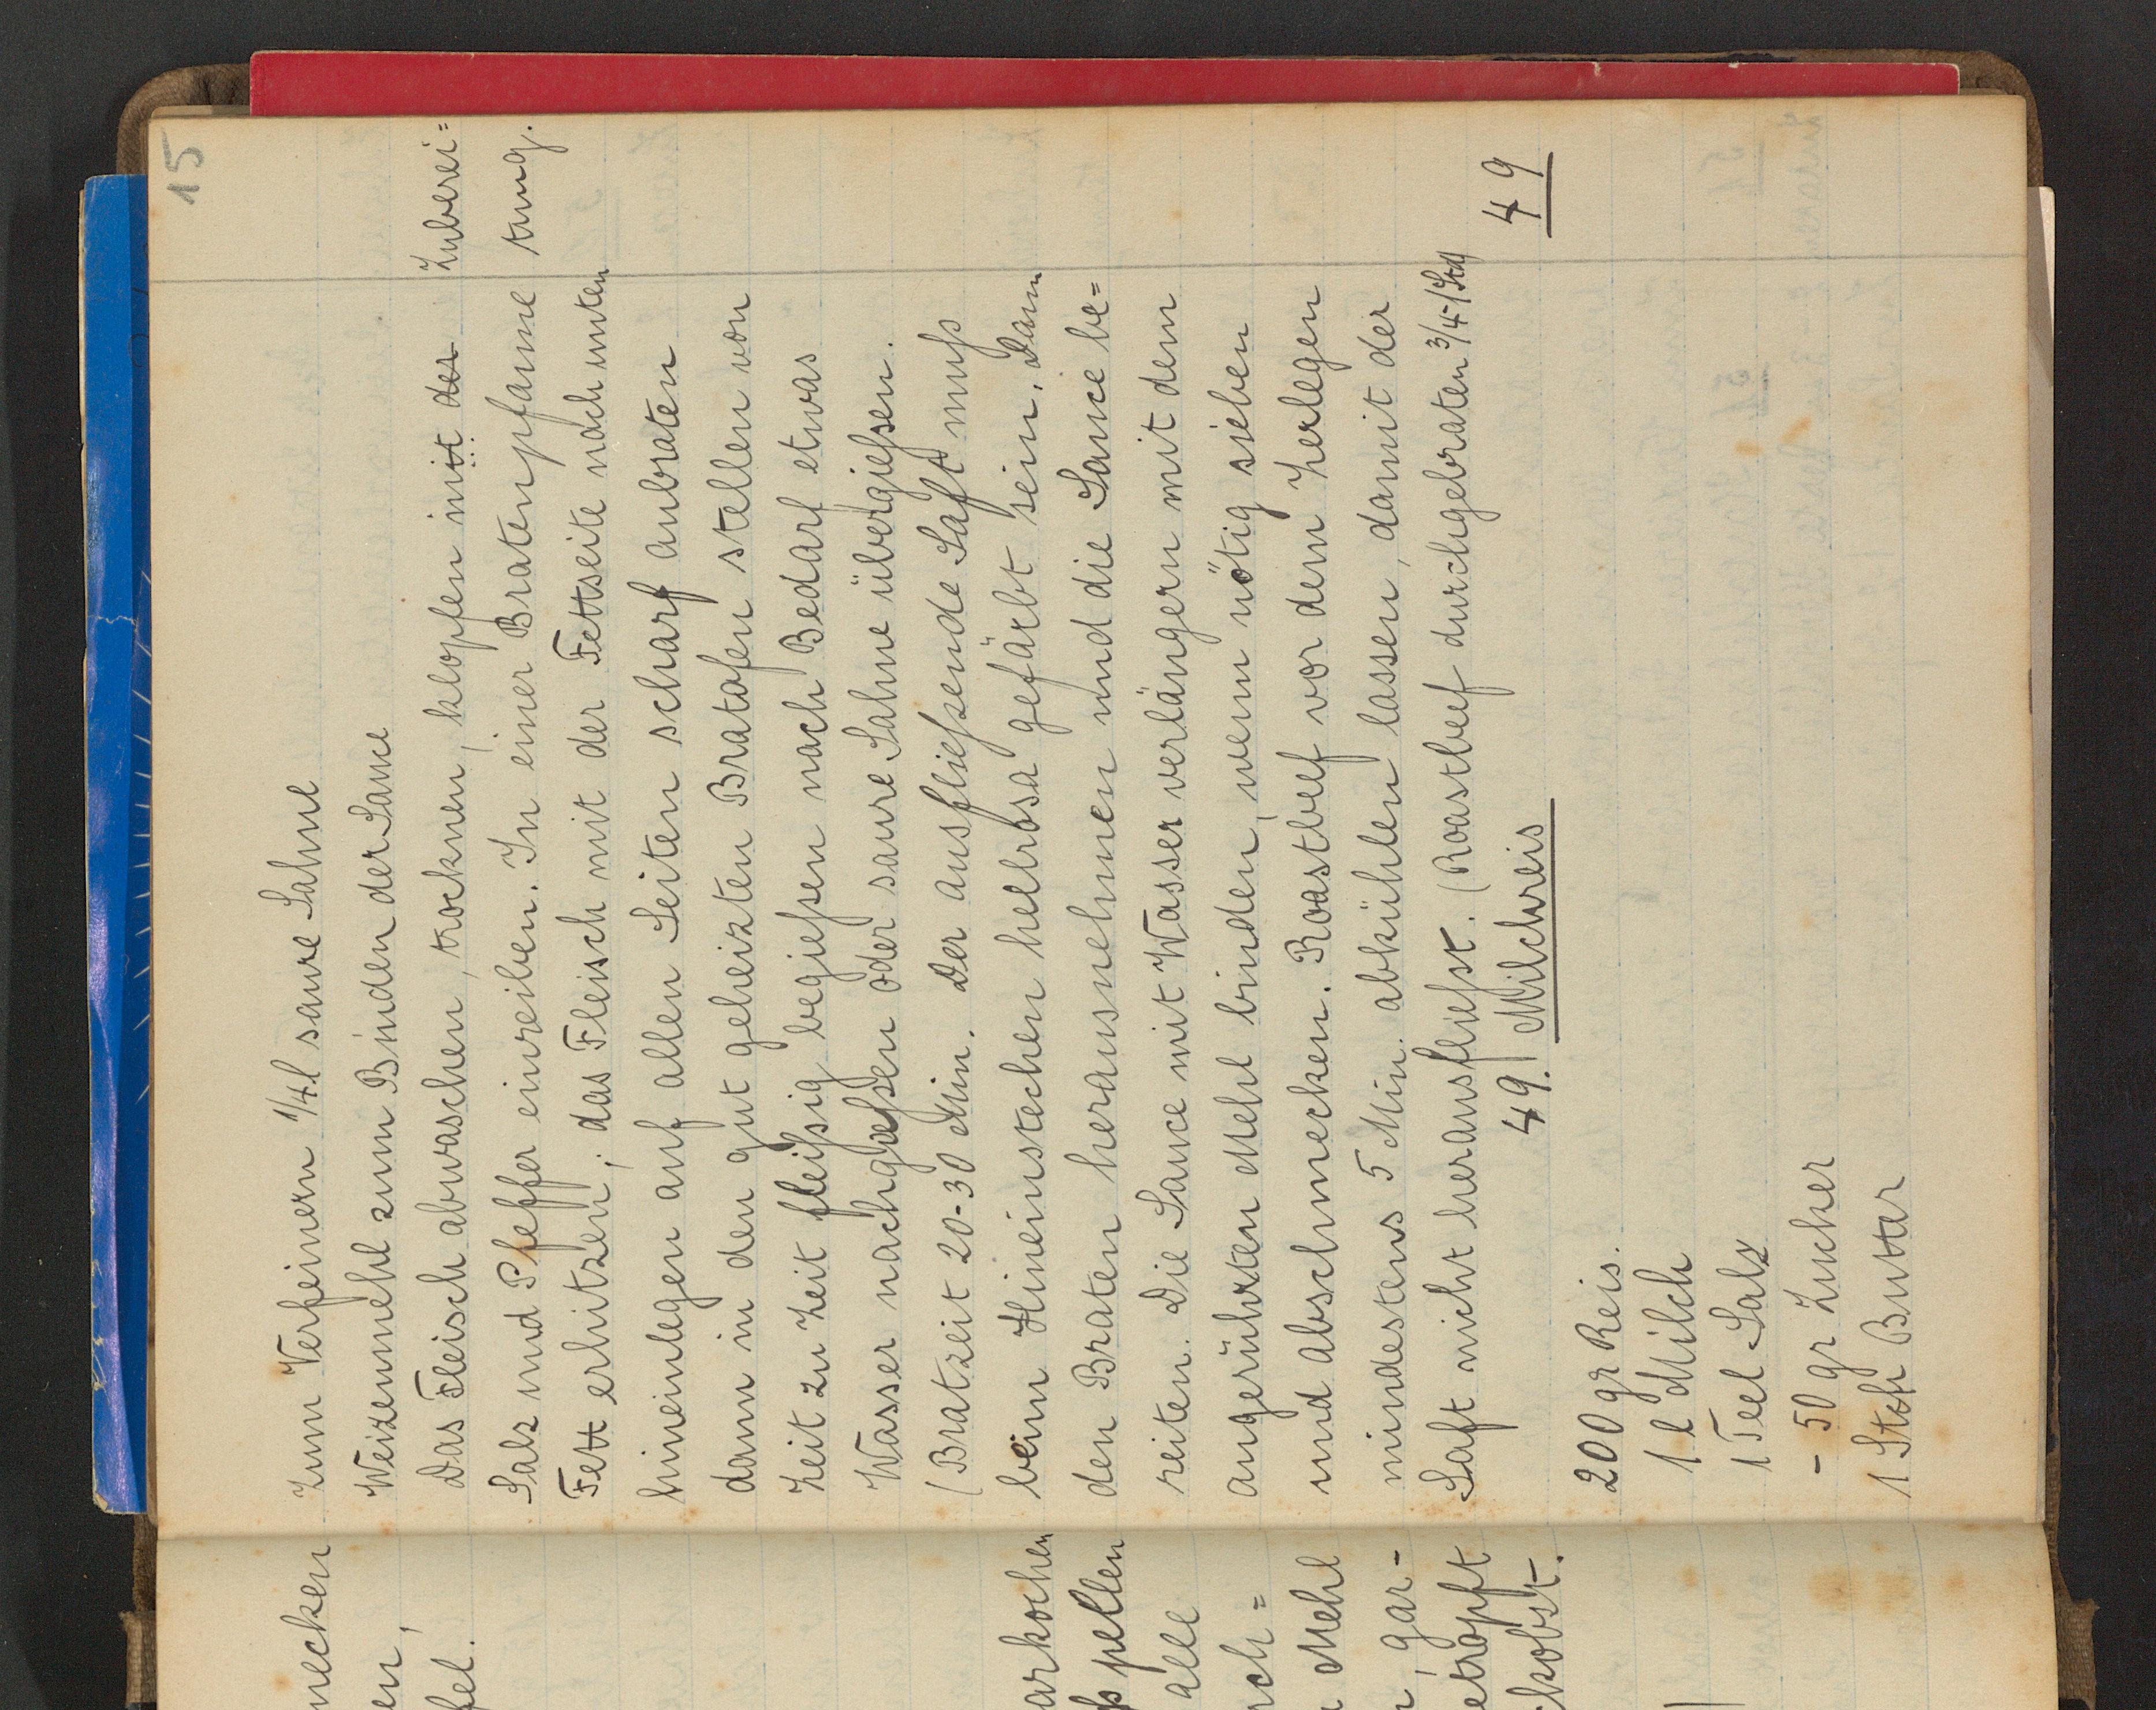 15
zum Verfeinern 1/4 l saure Sahne
Weizenmehl zum Binden der Sauce
Das Fleisch abwaschen, trocknen, klopfen mit der Zuberei=
Salz und Pfeffer einreiben. In einer Bratenpfanne tung.
Fett erhitzen; das Fleisch mit der Fettseite nach unten
hineinlegen auf allen Seiten scharf anbraten
dann in den gut geheizten Bratofen stellen von
Zeit zu Zeit fleißig begießen nach Bedarf etwas
Wasser nachgießen oder saure Sahne übergießen.
(Bratzeit 20-30 Min. Der ausfließende Saft muß
beim Hineinstechen hellrosa gefärbt sein. Dann
den Braten herausnehmen und die Sauce be=
reiten. Die Sauce mit Wasser verlängern mit dem
angerührten Mehl binden, wenn nötig sieben
und abschmecken. Roastbeef vor dem Zerlegen
mindestens 5 Min. abkühlen lassen, damit der
Saft nicht herausfließt. (Roastbeef durchgebraten 3/4-1 Std
49. Milchreis 49
200 gr Reis.
1 l Milch
1 Teel Salz
- 50 gr Zucker
1 Stch Butter
mecken
en,
fel.
arkochen
pellen
alle
ch=
Mehl
, gar-
etropft
ckobst.